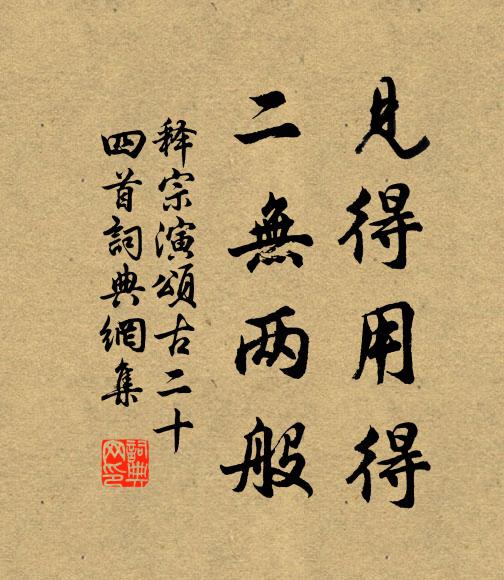 見得用得
二無两般
释宗演頌古二十
四首詞典網集
詞典
网印